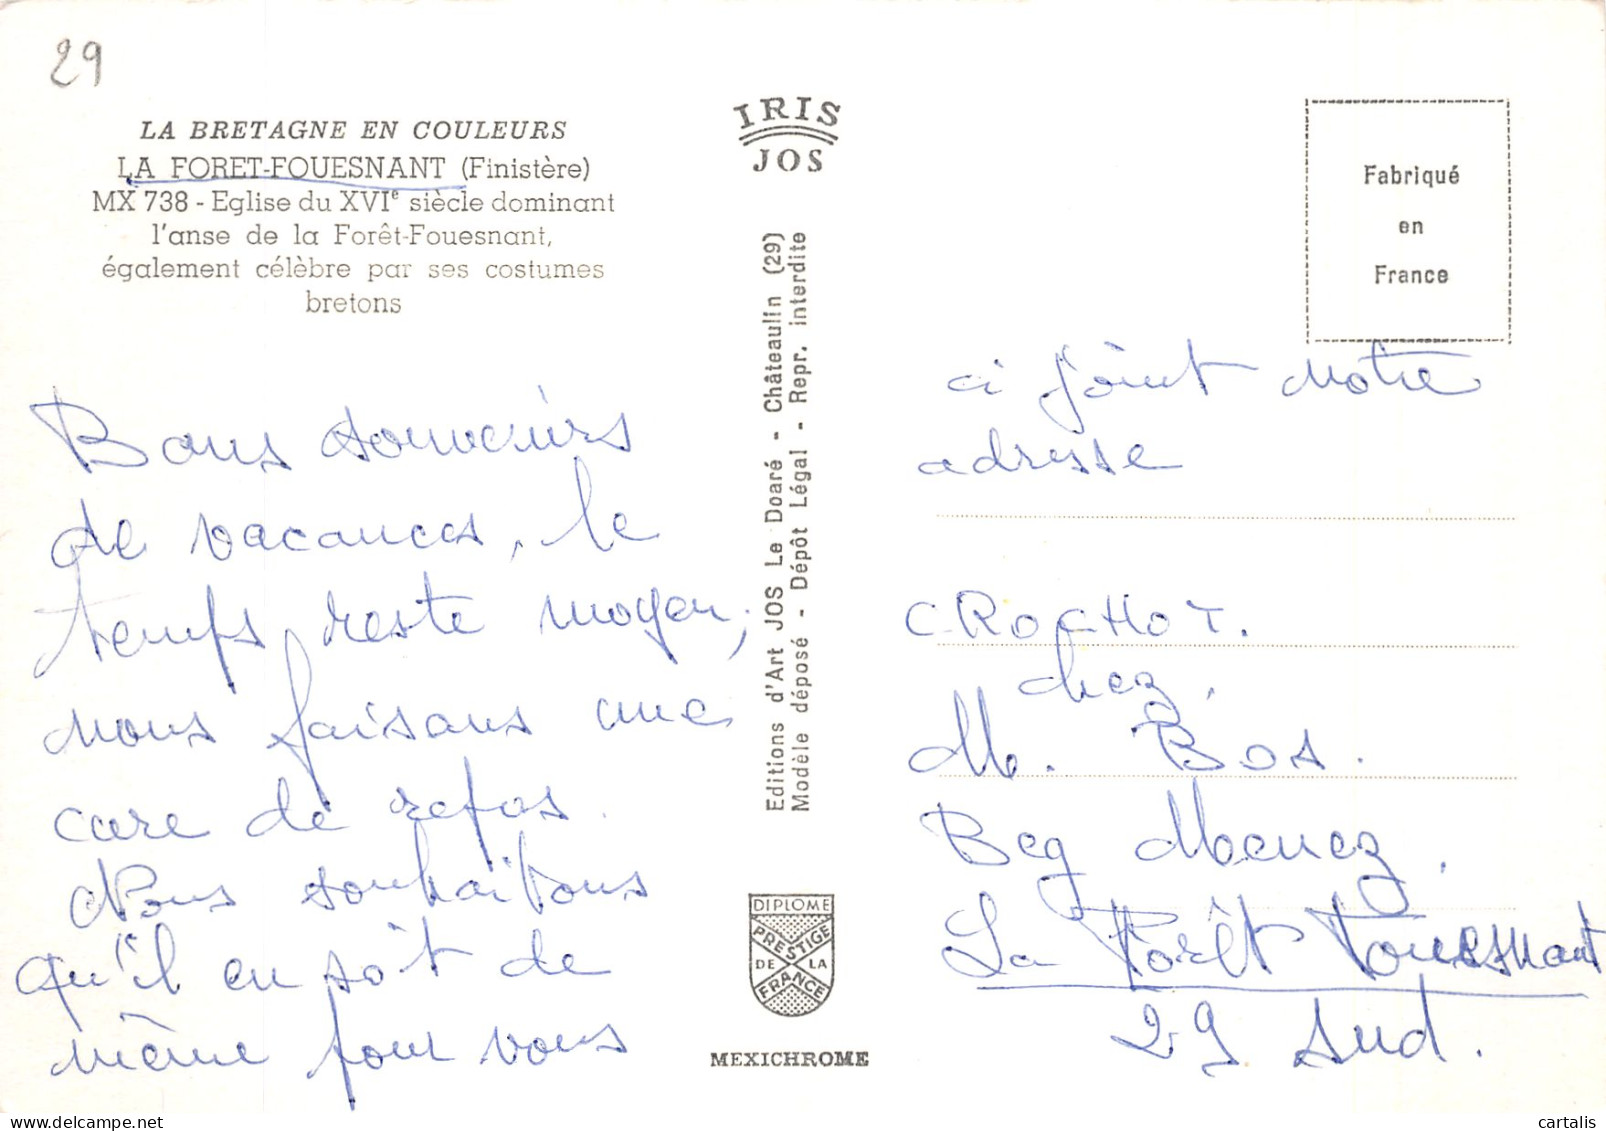 29
LA BRETAGNE EN COULEURS
LA FORET-FOUESNANT (Finistère)
MX 738 - Eglise du XVIe siècle dominant
l'anse de la Forêt-Fouesnant,
également célèbre par ses costumes
bretons
Bons souvenirs
de vacances, le
temps reste moyen,
nous faisons une
cure de repos.
Nous souhaitons
qu'il en soit de
même pour vous
IRIS
JOS
Editions d'Art JOS Le Doaré - Châteaulin (29)
Modèle déposé - Dépôt Légal - Repr. interdite
DIPLOME
PRESTIGE
DE LA
FRANCE
MEXICHROME
Fabriqué
en
France
ci joint notre
adresse
CROCHOT.
chez,
M. Bos.
Beg Menez,
La Forêt Fouesnant
29 Sud.
cartalis